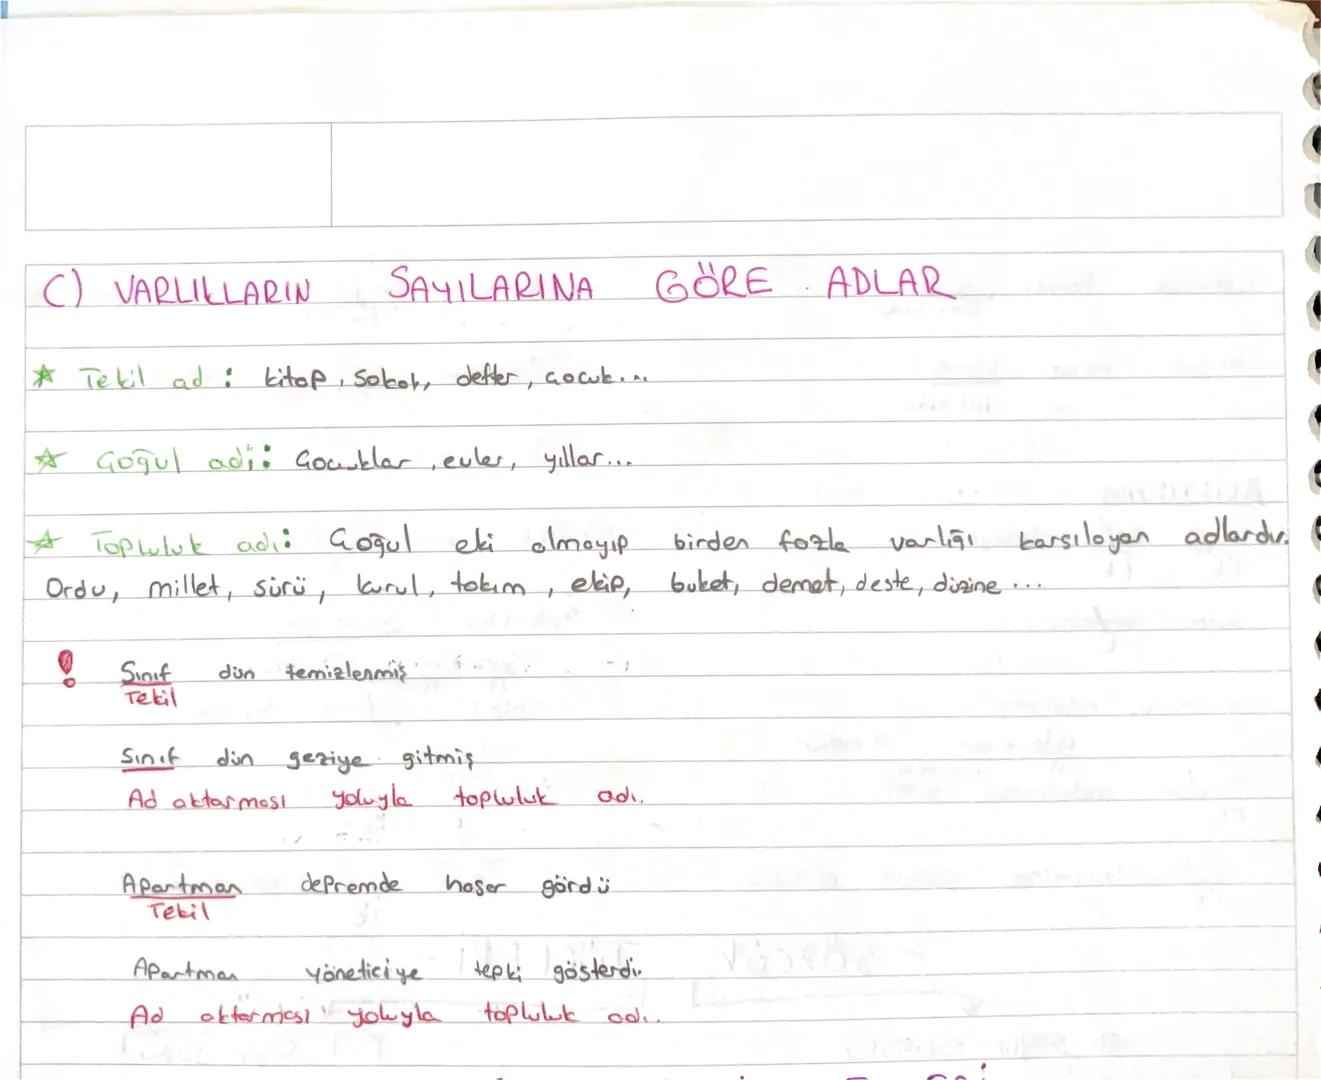 C) VARLIKLARIN SAYILARINA GÖRE ADLAR
☆ Tekil ad : kitap, sokak, defter, çocuk...
☆ Çoğul adı: Çocuklar, evler, yıllar...
☆ Topluluk adı: Çoğul eki almayıp birden fazla varlığı karşılayan adlardır.
Ordu, millet, sürü, kurul, takım, ekip, buket, demet, deste, düzine ...
! Sınıf dün temizlenmiş
Tekil
Sınıf dün geziye gitmiş
Ad aktarması yoluyla topluluk adı.
Apartman depremde hasar gördü
Tekil
Apartman yöneticiye tepki gösterdi.
Ad aktarması yoluyla topluluk adı.